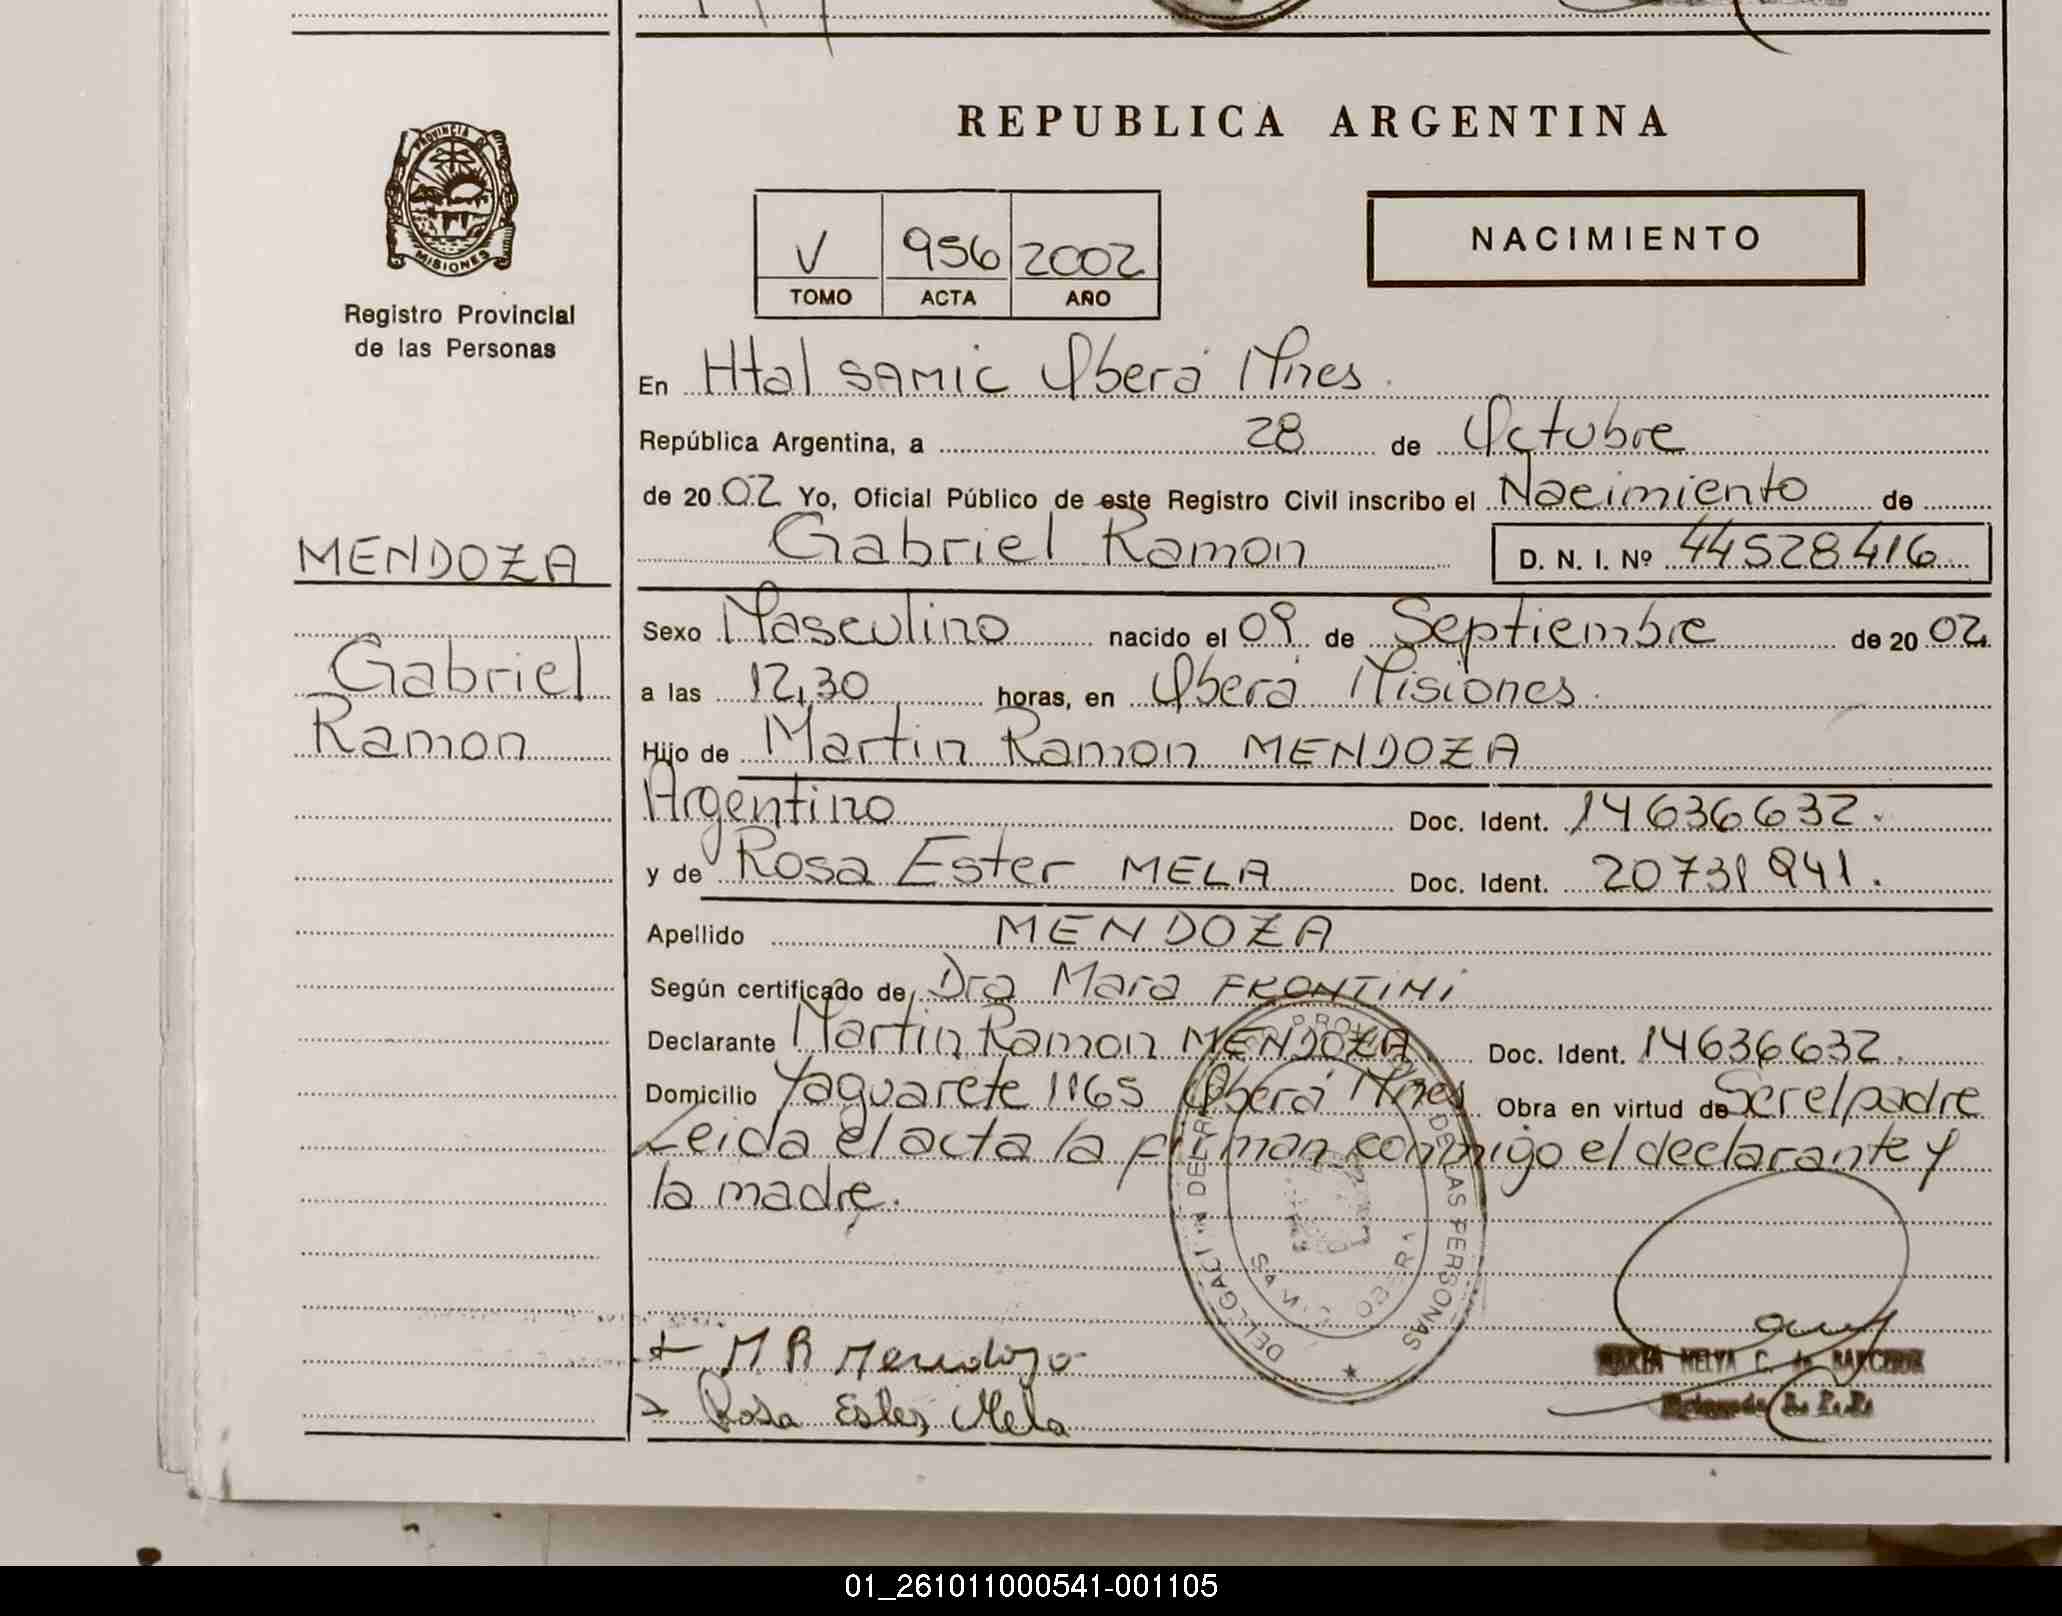 REPUBLICA ARGENTINA
PROVINCIA DE
MISIONES
Registro Provincial
de las Personas
V 956 2002
TOMO ACTA AÑO
NACIMIENTO
En Htal SAMIC Oberá Mnes.
República Argentina, a 28 de Octubre
de 20 02 Yo, Oficial Público de este Registro Civil inscribo el Nacimiento de
Gabriel Ramon D. N. I. Nº 44528416
MENDOZA
Gabriel
Ramon
Sexo Masculino nacido el 09 de Septiembre de 20 02.
a las 12,30 horas, en Oberá Misiones.
Hijo de Martin Ramon MENDOZA
Argentino Doc. Ident. 14636632.
y de Rosa Ester MELA Doc. Ident. 20731941.
Apellido MENDOZA
Según certificado de Dra Mara FRONTINI
Declarante Martin Ramon MENDOZA. Doc. Ident. 14636632.
Domicilio Yaguarete 1165 Oberá Mnes Obra en virtud de Ser el padre
Leida el acta la firman conmigo el declarante y
la madre.
DE LAS PERSONAS
M R Mendoza
Rosa Ester Mela
01_261011000541-001105